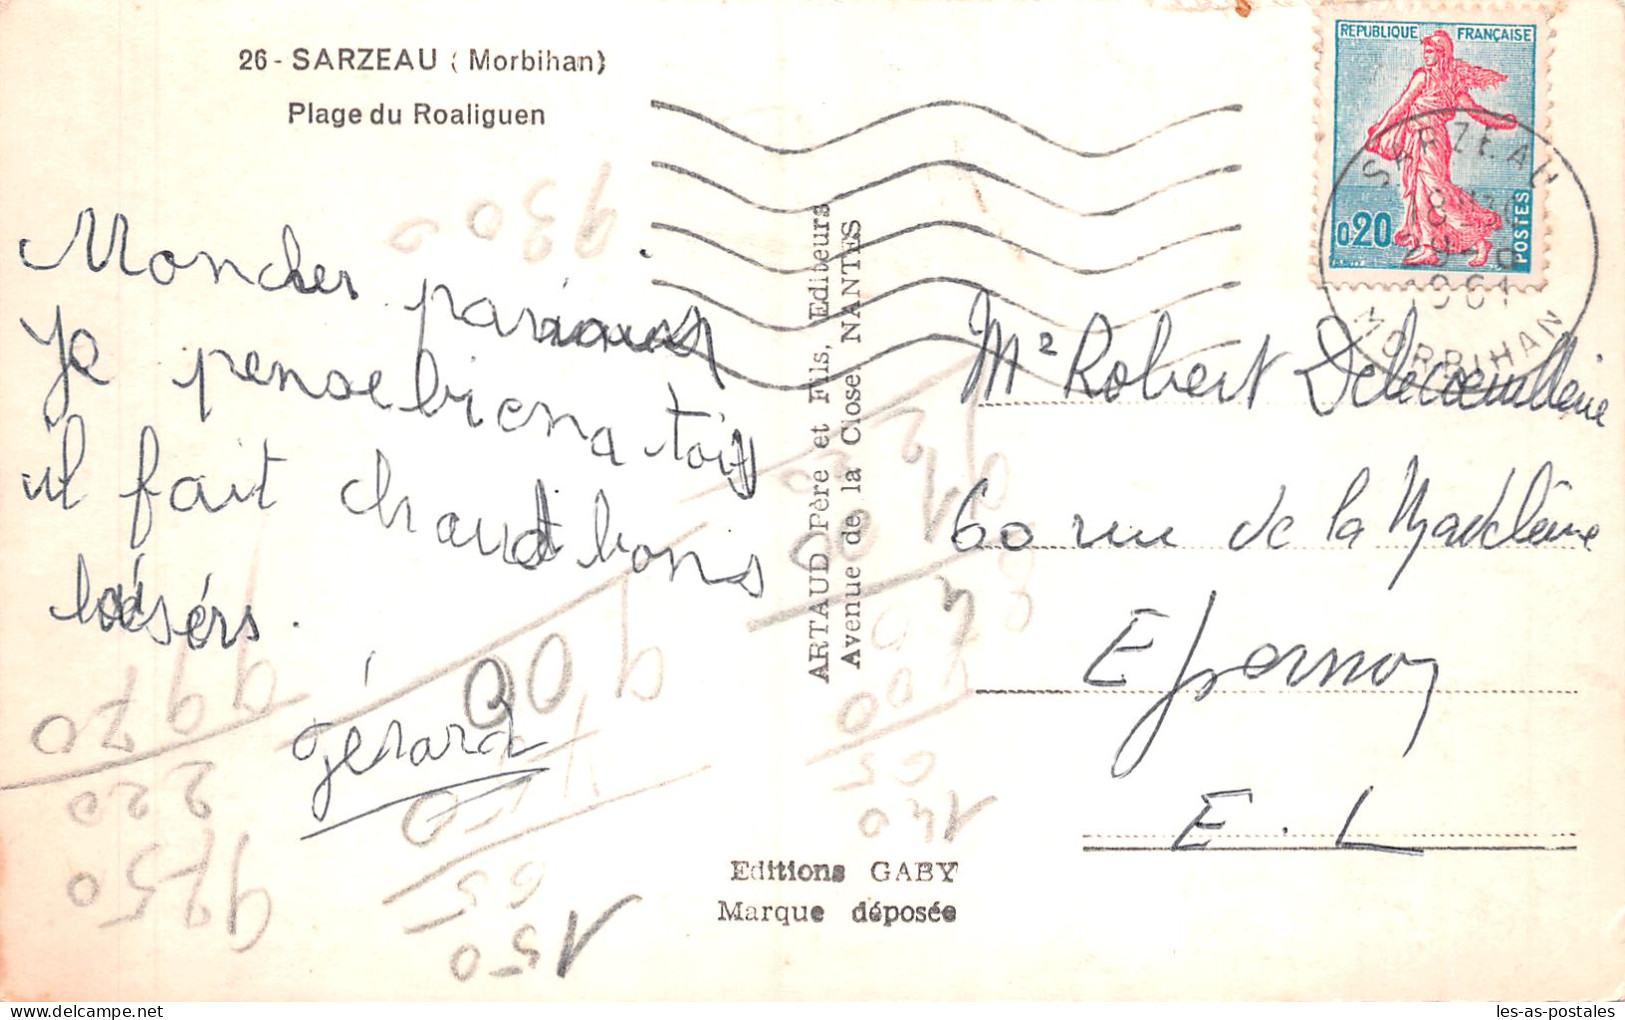 26 - SARZEAU (Morbihan)
Plage du Roaliguen
REPUBLIQUE FRANÇAISE
0,20
POSTES
SARZEAU
18
1961
MORBIHAN
Moncher
Je pense bien a toi
il fait chaud bons
baisérs.
gérard
ARTAUD Père et Fils, Editeurs
Avenue de la Close, NANTES
Editions GABY
Marque déposée
Mr Robert
60 rue de la Madeleine
Epernay
E. L
9300
9920
220
9250
900
65
150
140
les-as-postales